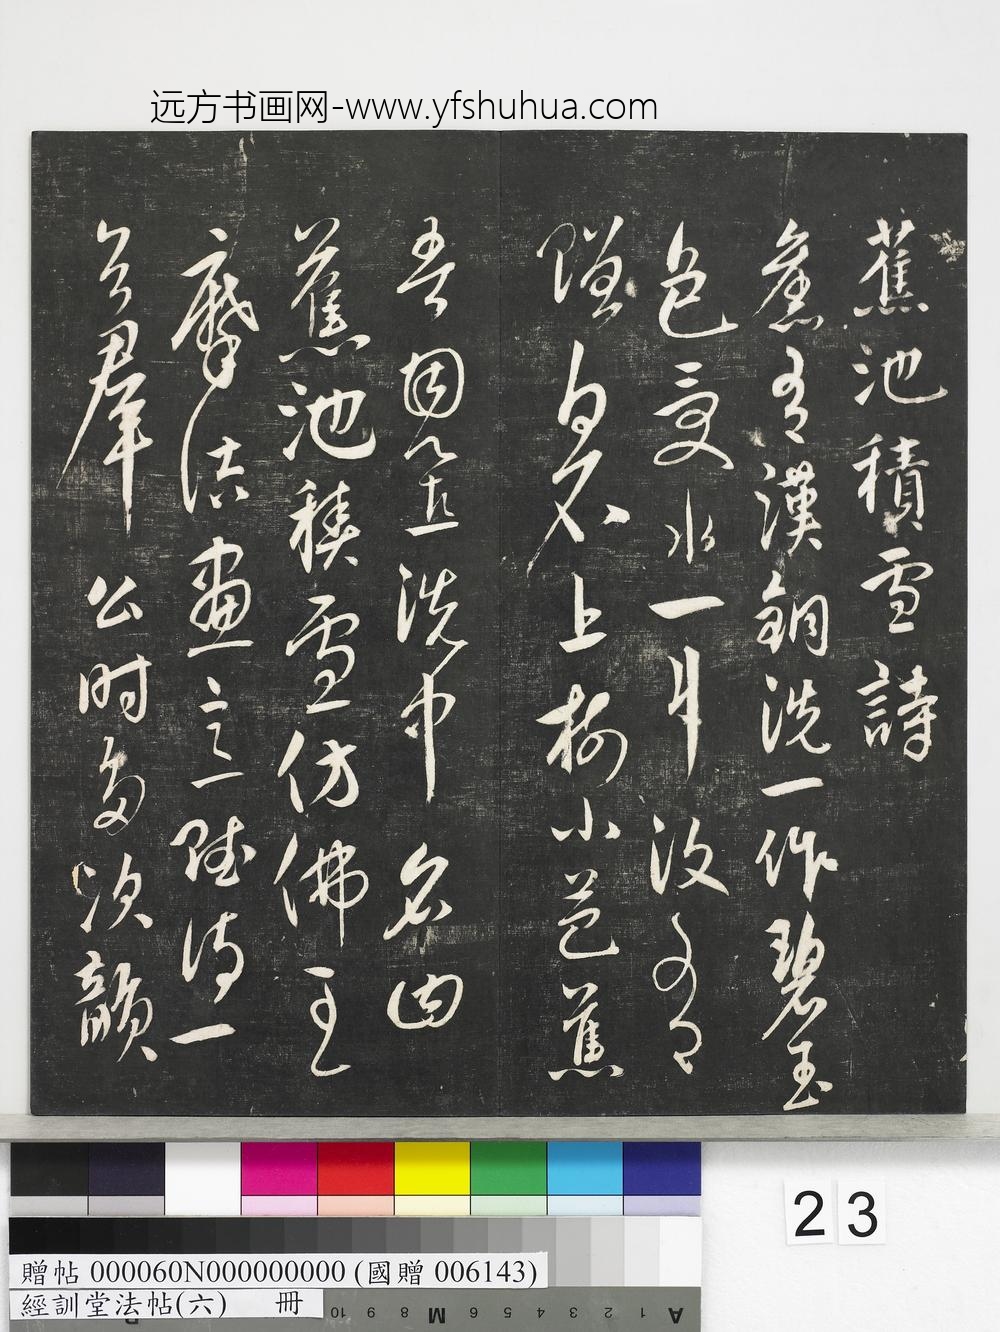 远方书画网-www.yfshuhua.com
蕉池積雪詩
舊有漢銅洗一作碧玉
色受水一斗汲多則
不上樹小芭蕉
吾因置洗中名曰
蕉池積雪仿佛王
摩詰畫意賦詩一
首羣公時多次韻
23
贈帖 000060N000000000 (國贈 006143)
經訓堂法帖(六) 冊